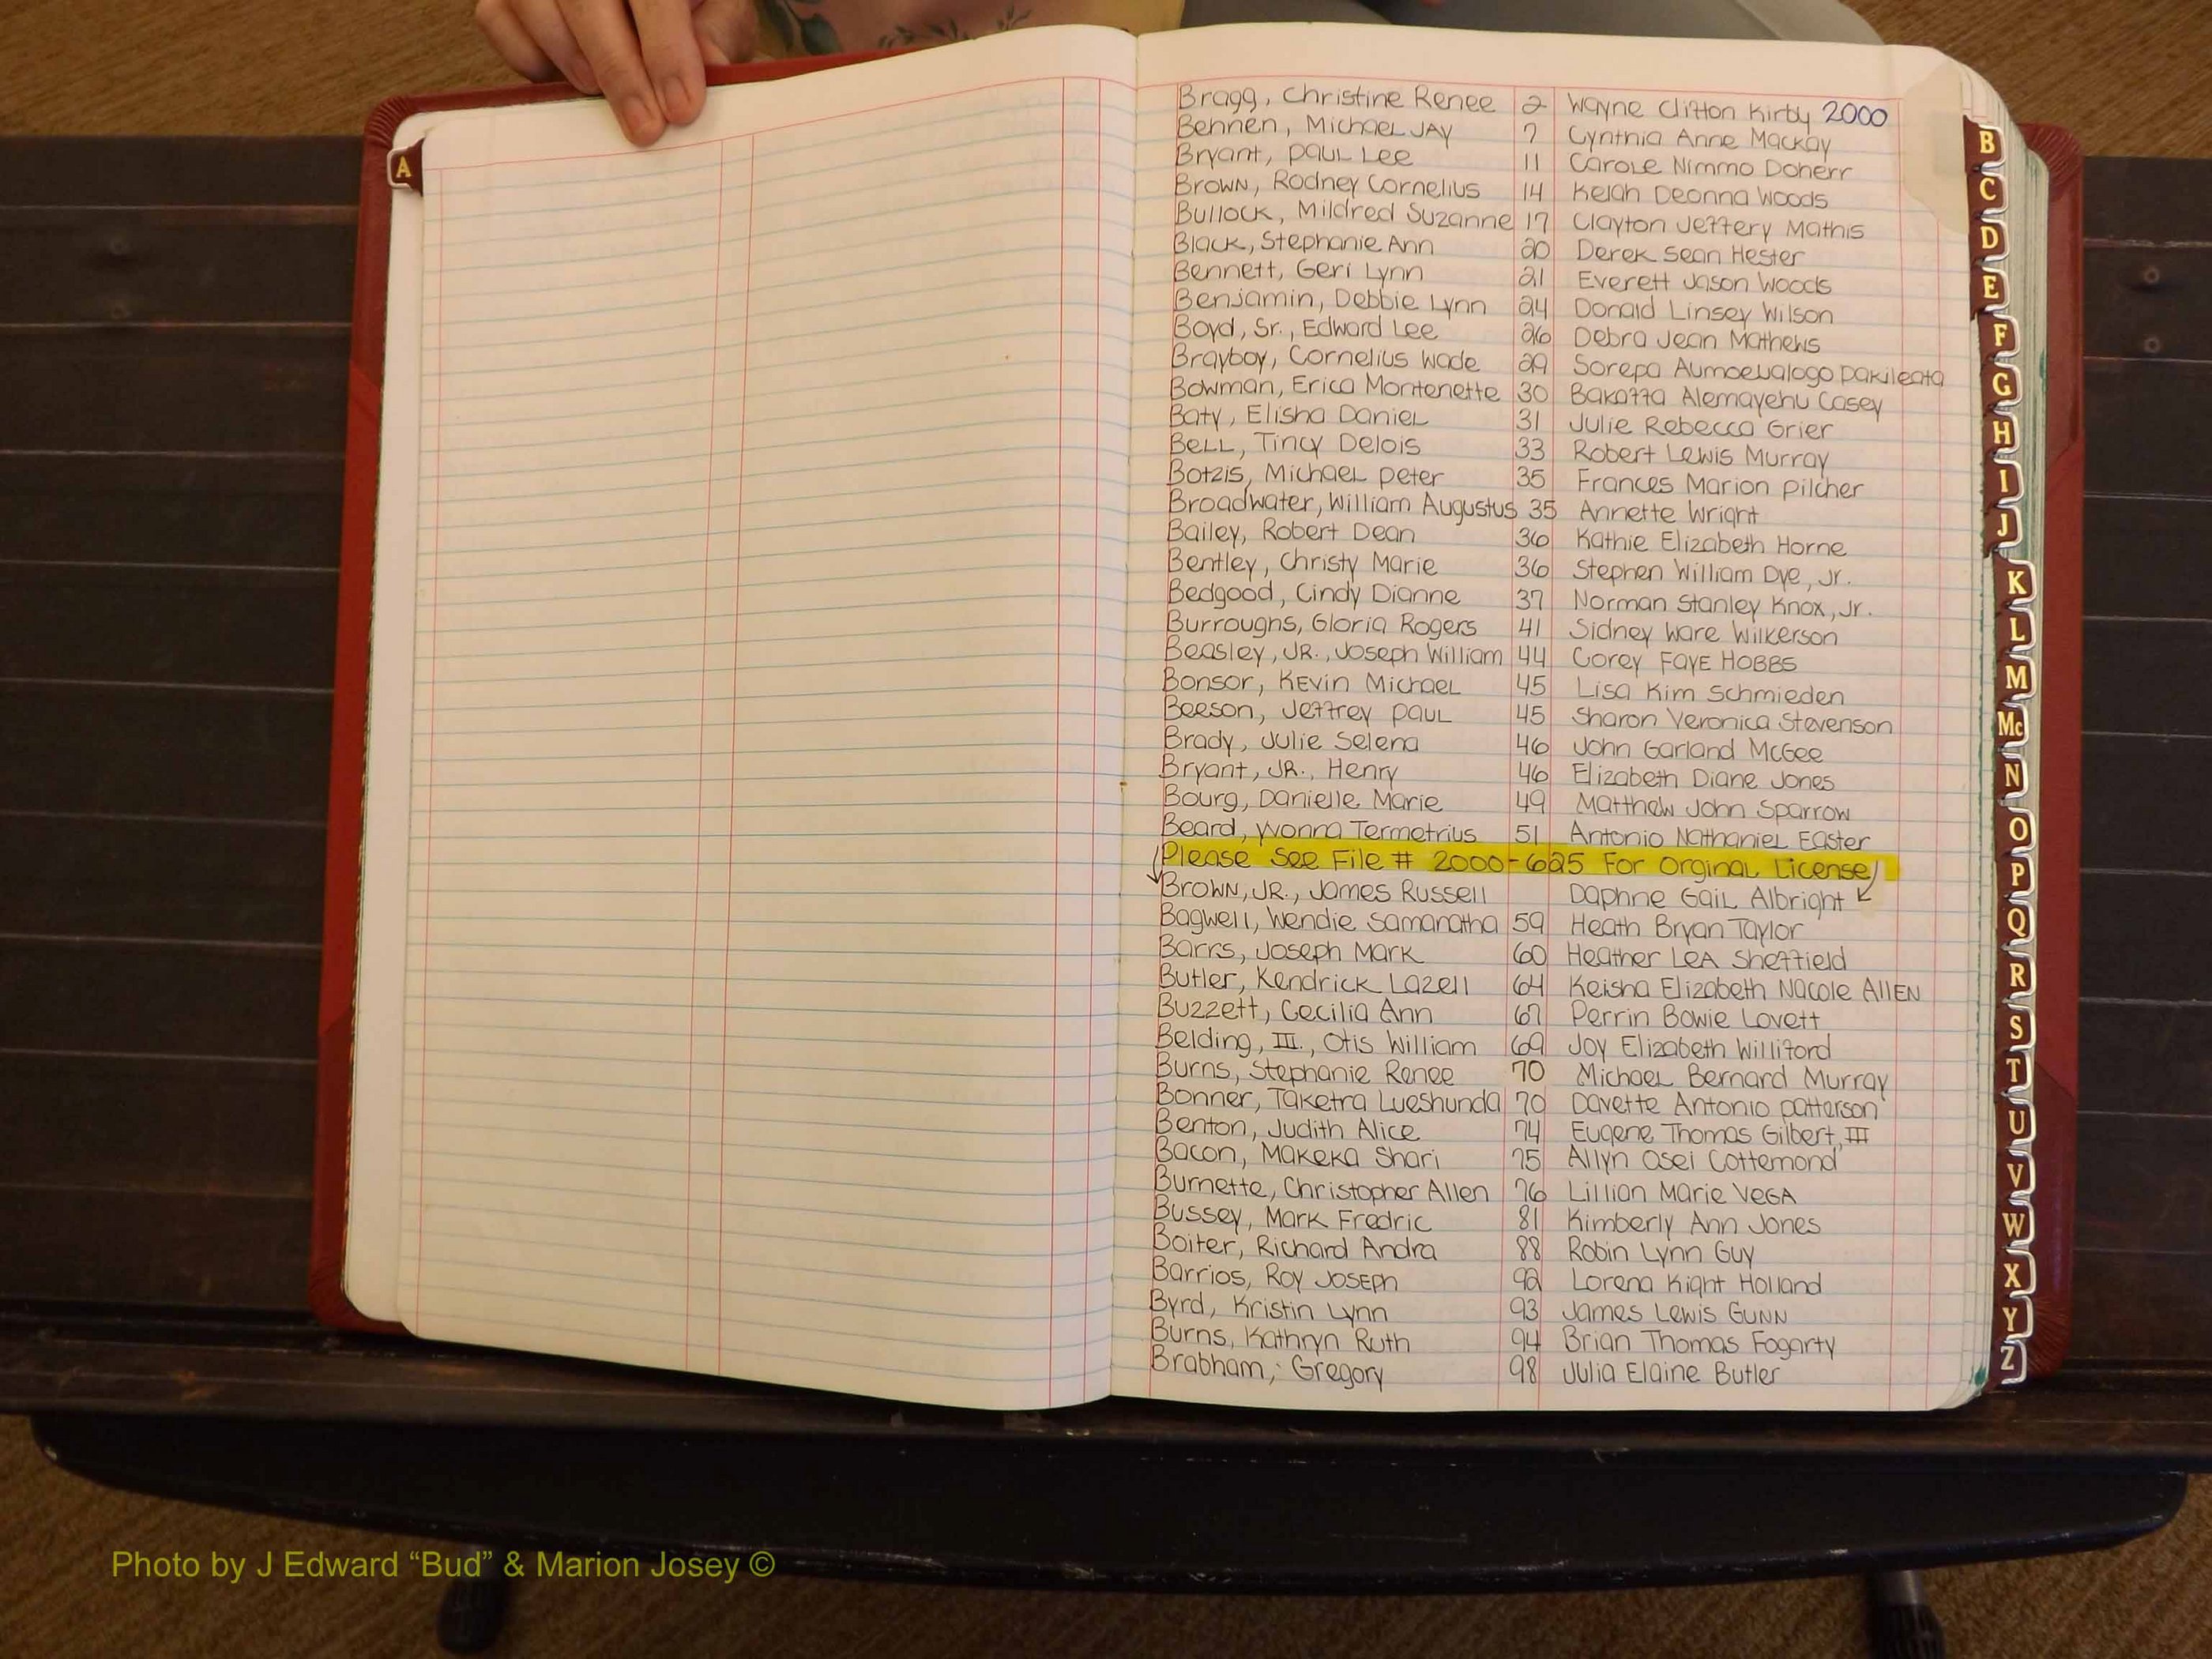 A
Bragg, Christine Renee 2 Wayne Clifton Kirby 2000
Bennen, Michael JAY 7 Cynthia Anne Mackay
Bryant, Paul Lee 11 Carole Nimmo Doherr
Brown, Rodney Cornelius 14 Kelah Deonna Woods
Bullock, Mildred Suzanne 17 Clayton Jeffery Mathis
Black, Stephanie Ann 20 Derek Sean Hester
Bennett, Geri Lynn 21 Everett Jason Woods
Benjamin, Debbie Lynn 24 Donald Linsey Wilson
Boyd, Sr., Edward Lee 26 Debra Jean Mathews
Brayboy, Cornelius Wade 29 Sorepa Aumoeualogo Pakileata
Bowman, Erica Montenette 30 Bakaffa Alemayehu Casey
Baty, Elisha Daniel 31 Julie Rebecca Grier
Bell, Tincy Delois 33 Robert Lewis Murray
Botzis, Michael Peter 35 Frances Marion Pilcher
Broadwater, William Augustus 35 Annette Wright
Bailey, Robert Dean 36 Kathie Elizabeth Horne
Bentley, Christy Marie 36 Stephen William Dye, Jr.
Bedgood, Cindy Dianne 37 Norman Stanley Knox, Jr.
Burroughs, Gloria Rogers 41 Sidney Ware Wilkerson
Beasley, JR., Joseph William 44 Corey FAYE HOBBS
Bonsor, Kevin Michael 45 Lisa Kim Schmieden
Beeson, Jeffrey Paul 45 Sharon Veronica Stevenson
Brady, Julie Selena 46 John Garland McGee
Bryant, JR., Henry 46 Elizabeth Diane Jones
Bourg, Danielle Marie 49 Matthew John Sparrow
Beard, Yvonna Termetrius 51 Antonio Nathaniel Easter
Please See File # 2000-625 For Orginal License
Brown, JR., James Russell Daphne Gail Albright
Bagwell, Wendie Samanatha 59 Heath Bryan Taylor
Barrs, Joseph Mark 60 Heather LeA Sheffield
Butler, Kendrick Lazell 64 Keisha Elizabeth Nacole AllEN
Buzzett, Cecilia Ann 67 Perrin Bowie Lovett
Belding, III., Otis William 69 Joy Elizabeth Williford
Burns, Stephanie Renee 70 Michael Bernard Murray
Bonner, Taketra Lueshunda 70 Davette Antonio Patterson
Benton, Judith Alice 74 Eugene Thomas Gilbert, III
Bacon, Makeka Shari 75 Allyn Osei Cottemond
Burnette, Christopher Allen 76 Lillian Marie VeGA
Bussey, Mark Fredric 81 Kimberly Ann Jones
Boiter, Richard Andra 88 Robin Lynn Guy
Barrios, Roy Joseph 92 Lorena Kight Holland
Byrd, Kristin Lynn 93 James Lewis Gunn
Burns, Kathryn Ruth 94 Brian Thomas Fogarty
Brabham, Gregory 98 Julia Elaine Butler
B
C
D
E
F
G
H
I
J
K
L
M
Mc
N
O
P
Q
R
S
T
U
V
W
X
Y
Z
Photo by J Edward “Bud” & Marion Josey ©